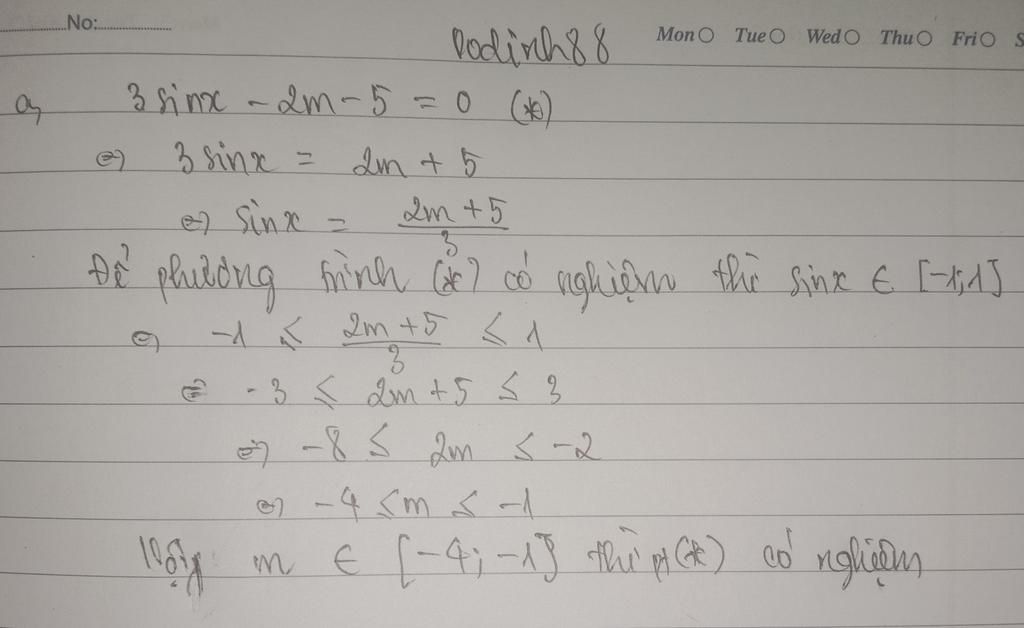 No:
Mon Tue Wed Thu Fri S
Dodinh88
a, 3 sinx - 2m - 5 = 0 (*)
⇔ 3 sinx = 2m + 5
⇔ sinx = \frac{2m + 5}{3}
Để phương trình (*) có nghiệm thì sinx ∈ [-1; 1]
⇔ -1 ≤ \frac{2m + 5}{3} ≤ 1
⇔ -3 ≤ 2m + 5 ≤ 3
⇔ -8 ≤ 2m ≤ -2
⇔ -4 ≤ m ≤ -1
Vậy m ∈ [-4; -1] thì pt (*) có nghiệm